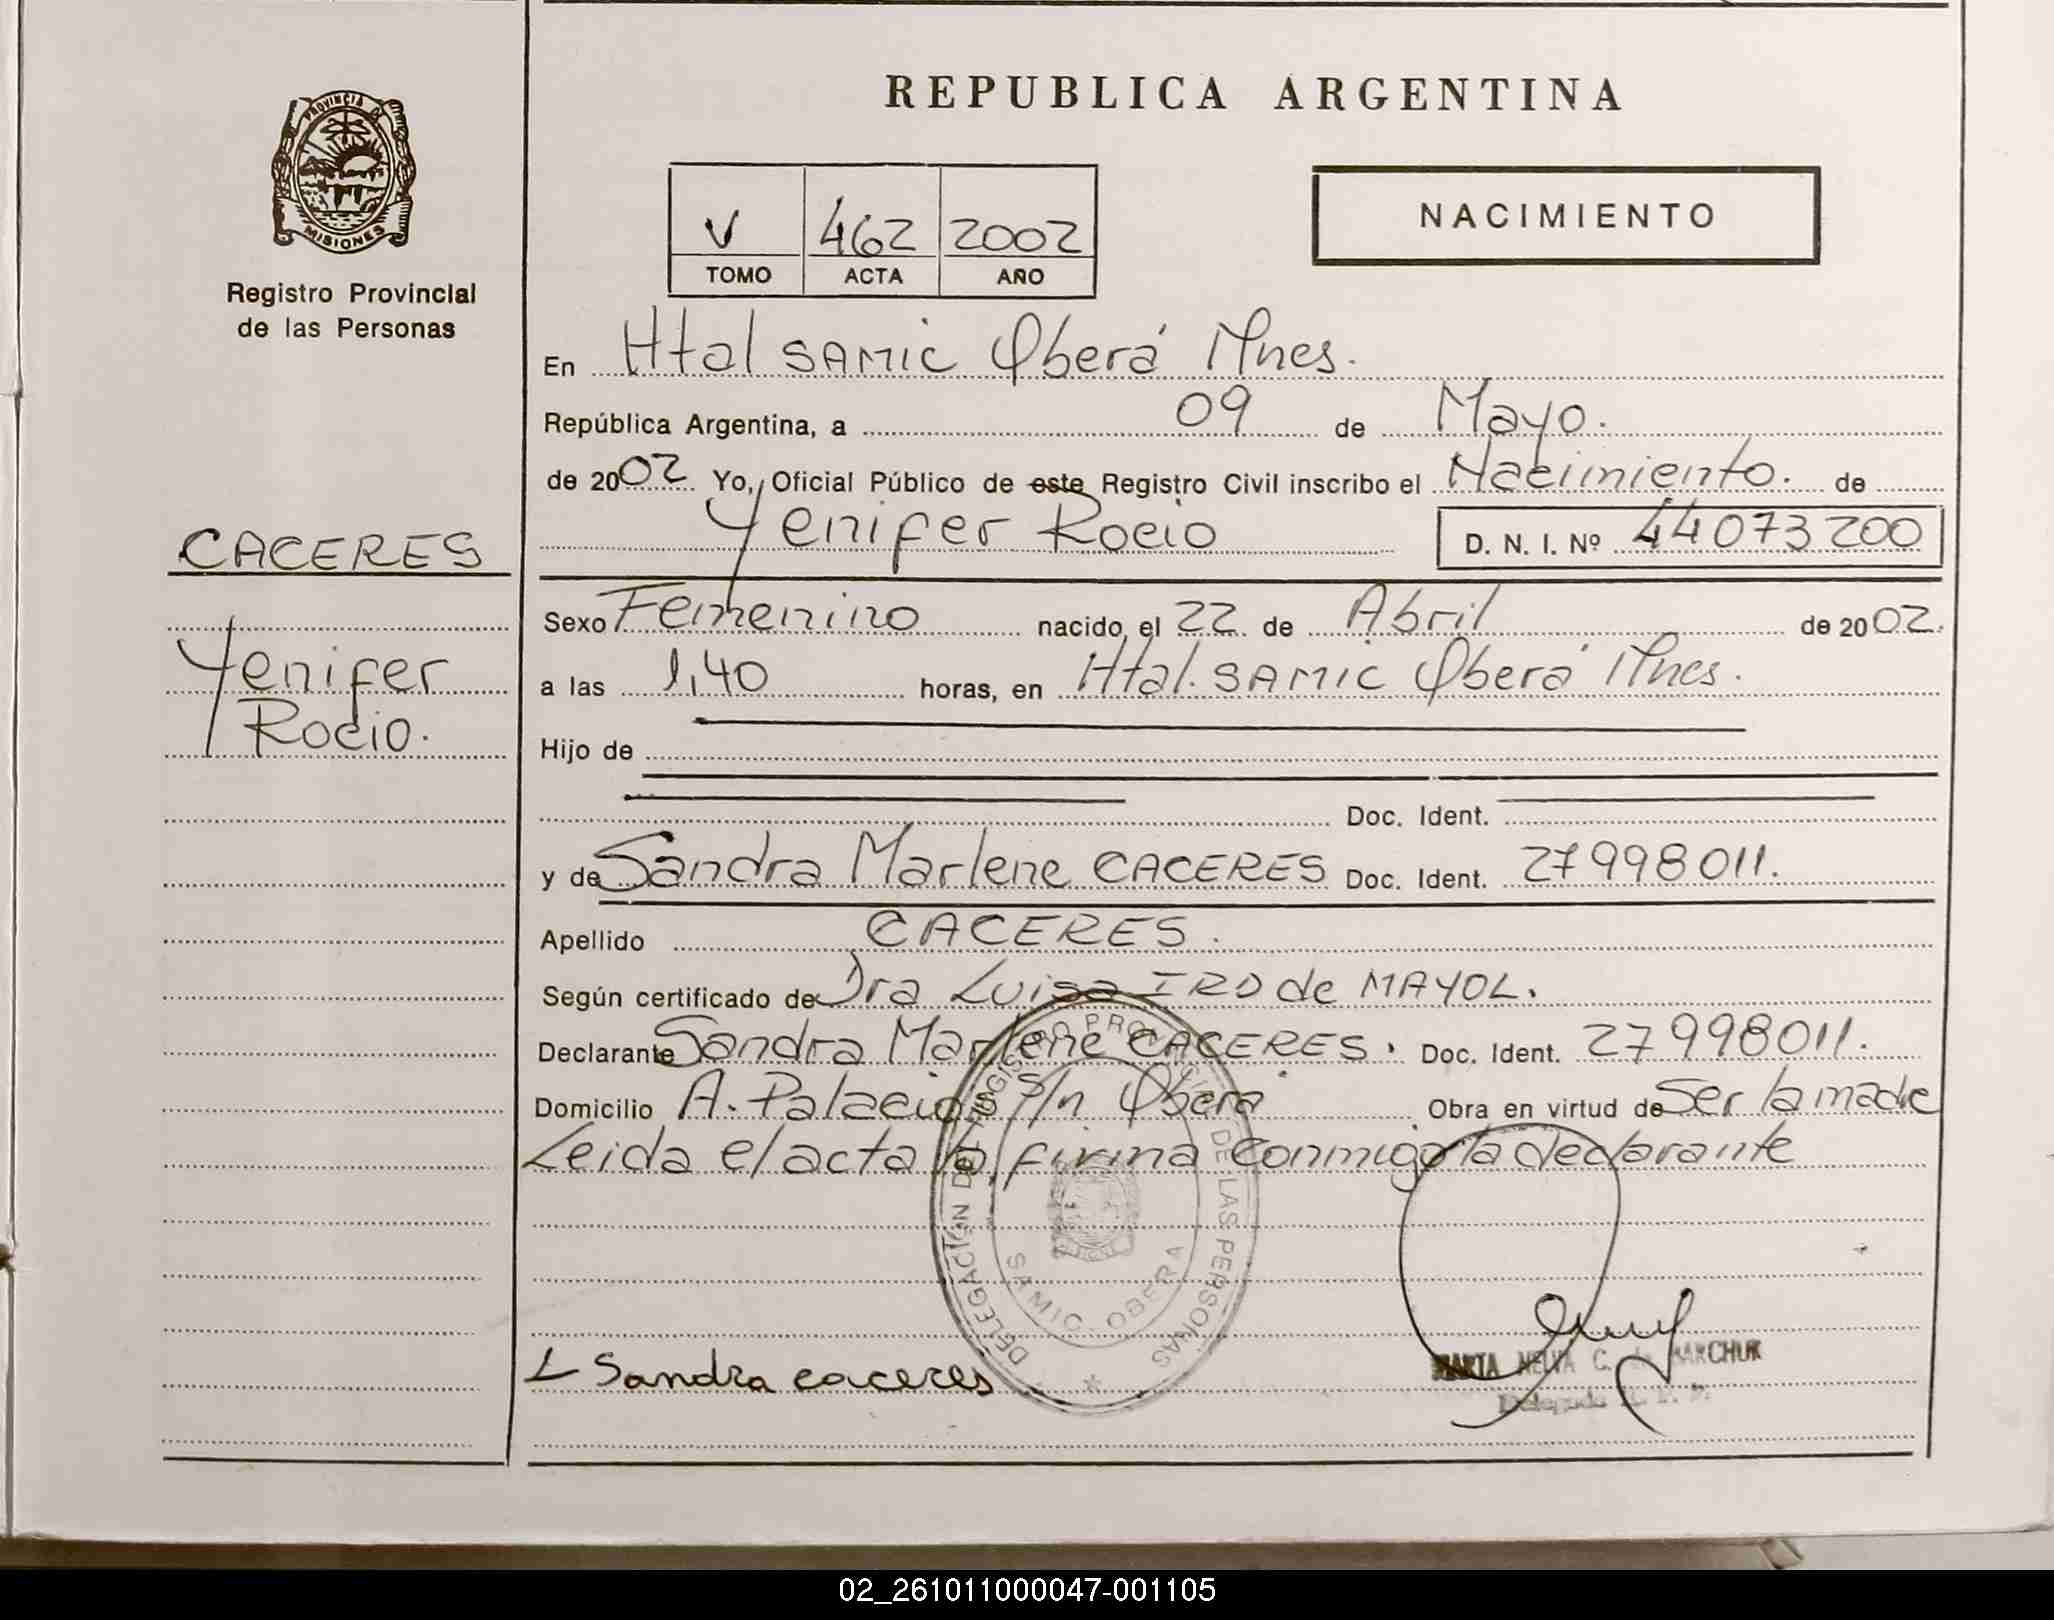 REPUBLICA ARGENTINA
PROVINCIA DE
MISIONES
Registro Provincial
de las Personas
V 462 2002
TOMO ACTA AÑO
NACIMIENTO
En Htal SAMIC Oberá Mnes.
República Argentina, a 09 de Mayo.
de 2002 Yo, Oficial Público de este Registro Civil inscribo el Nacimiento. de
Yenifer Rocio D. N. I. Nº 44073200
CACERES
Yenifer
Rocio.
Sexo Femenino nacido el 22 de Abril de 2002.
a las 1,40 horas, en Htal. SAMIC Oberá Mnes.
Hijo de
Doc. Ident.
y de Sandra Marlene CACERES Doc. Ident. 27998011.
Apellido CACERES.
Según certificado de Dra Luisa IRO de MAYOL.
Declarante Sandra Marlene CACERES. Doc. Ident. 27998011.
Domicilio A. Palacios S/n Oberá Obra en virtud de Ser la madre
Leida el acta la firma conmigo la declarante
DELEGACIÓN DEL REGISTRO PROVINCIAL DE LAS PERSONAS
SAMIC OBERA
Sandra caceres
MARTA NELVA C. de MARCHUK
Delegada R. P. P.
02_261011000047-001105